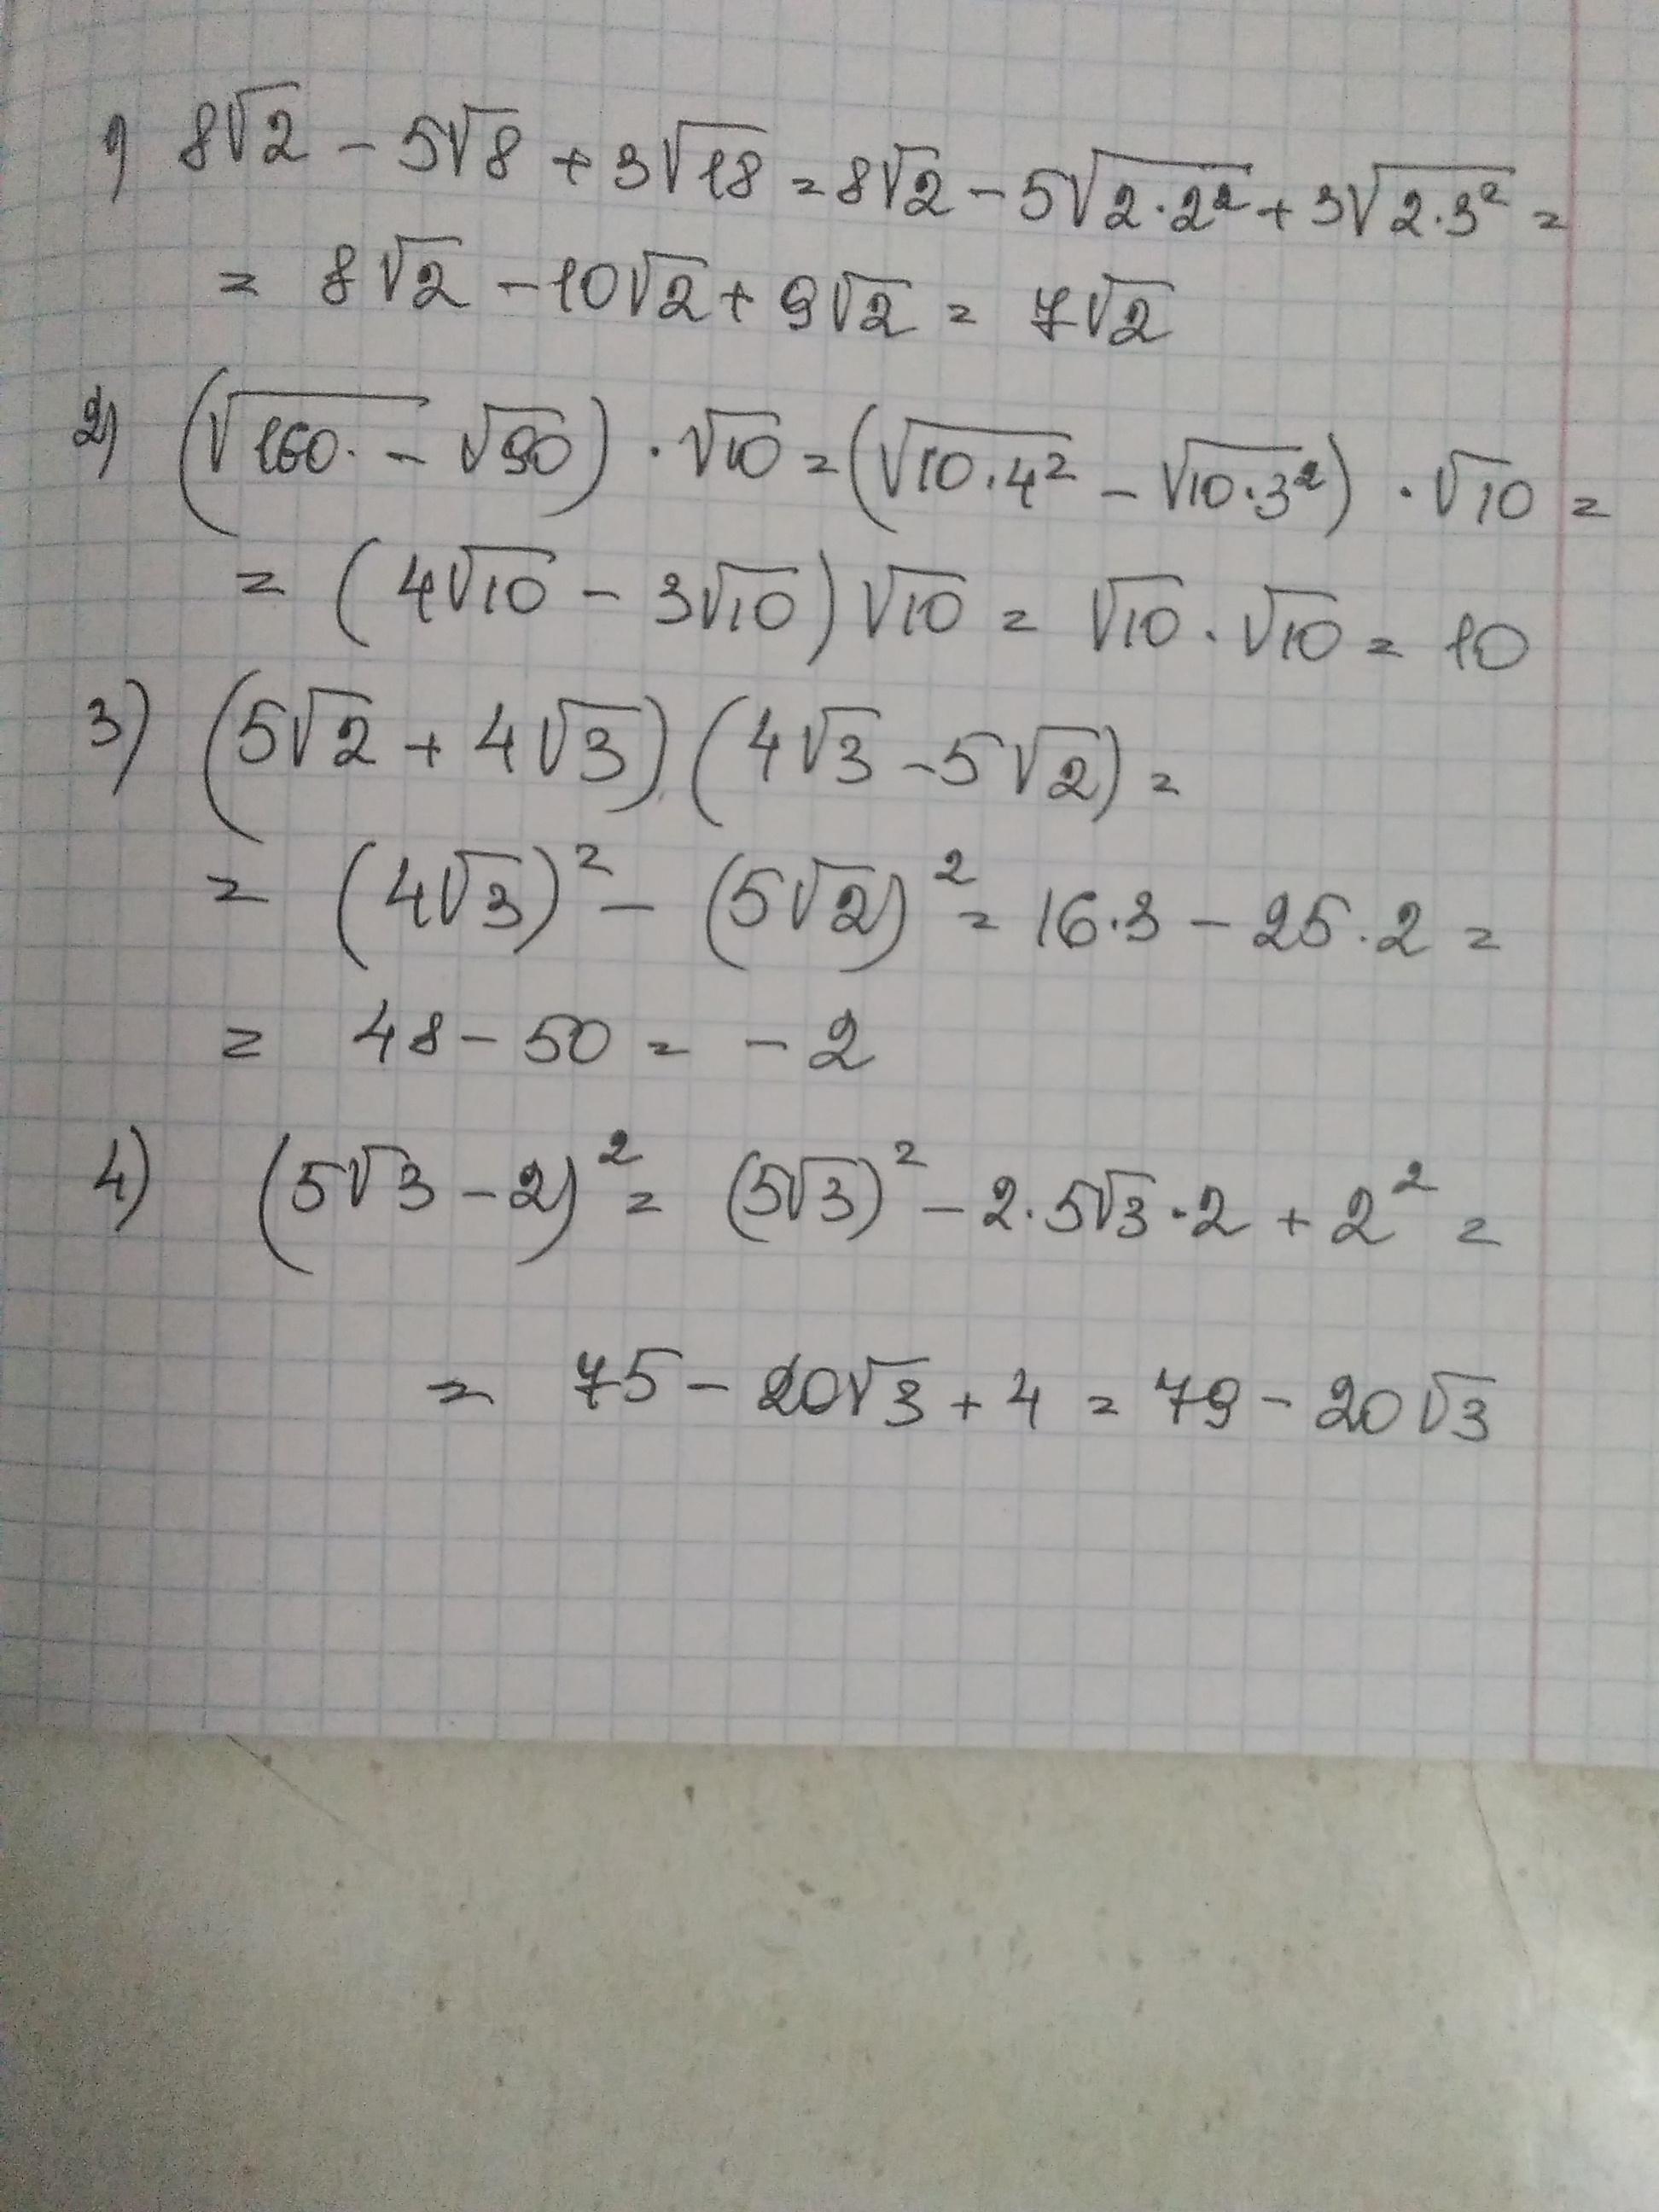 1) 8√2 - 5√8 + 3√18 = 8√2 - 5√(2·2²) + 3√(2·3²) =
= 8√2 - 10√2 + 9√2 = 7√2
2) (√160 - √90) · √10 = (√(10·4²) - √(10·3²)) · √10 =
= (4√10 - 3√10)√10 = √10 · √10 = 10
3) (5√2 + 4√3)(4√3 - 5√2) =
= (4√3)² - (5√2)² = 16·3 - 25·2 =
= 48 - 50 = -2
4) (5√3 - 2)² = (5√3)² - 2·5√3·2 + 2² =
= 75 - 20√3 + 4 = 79 - 20√3